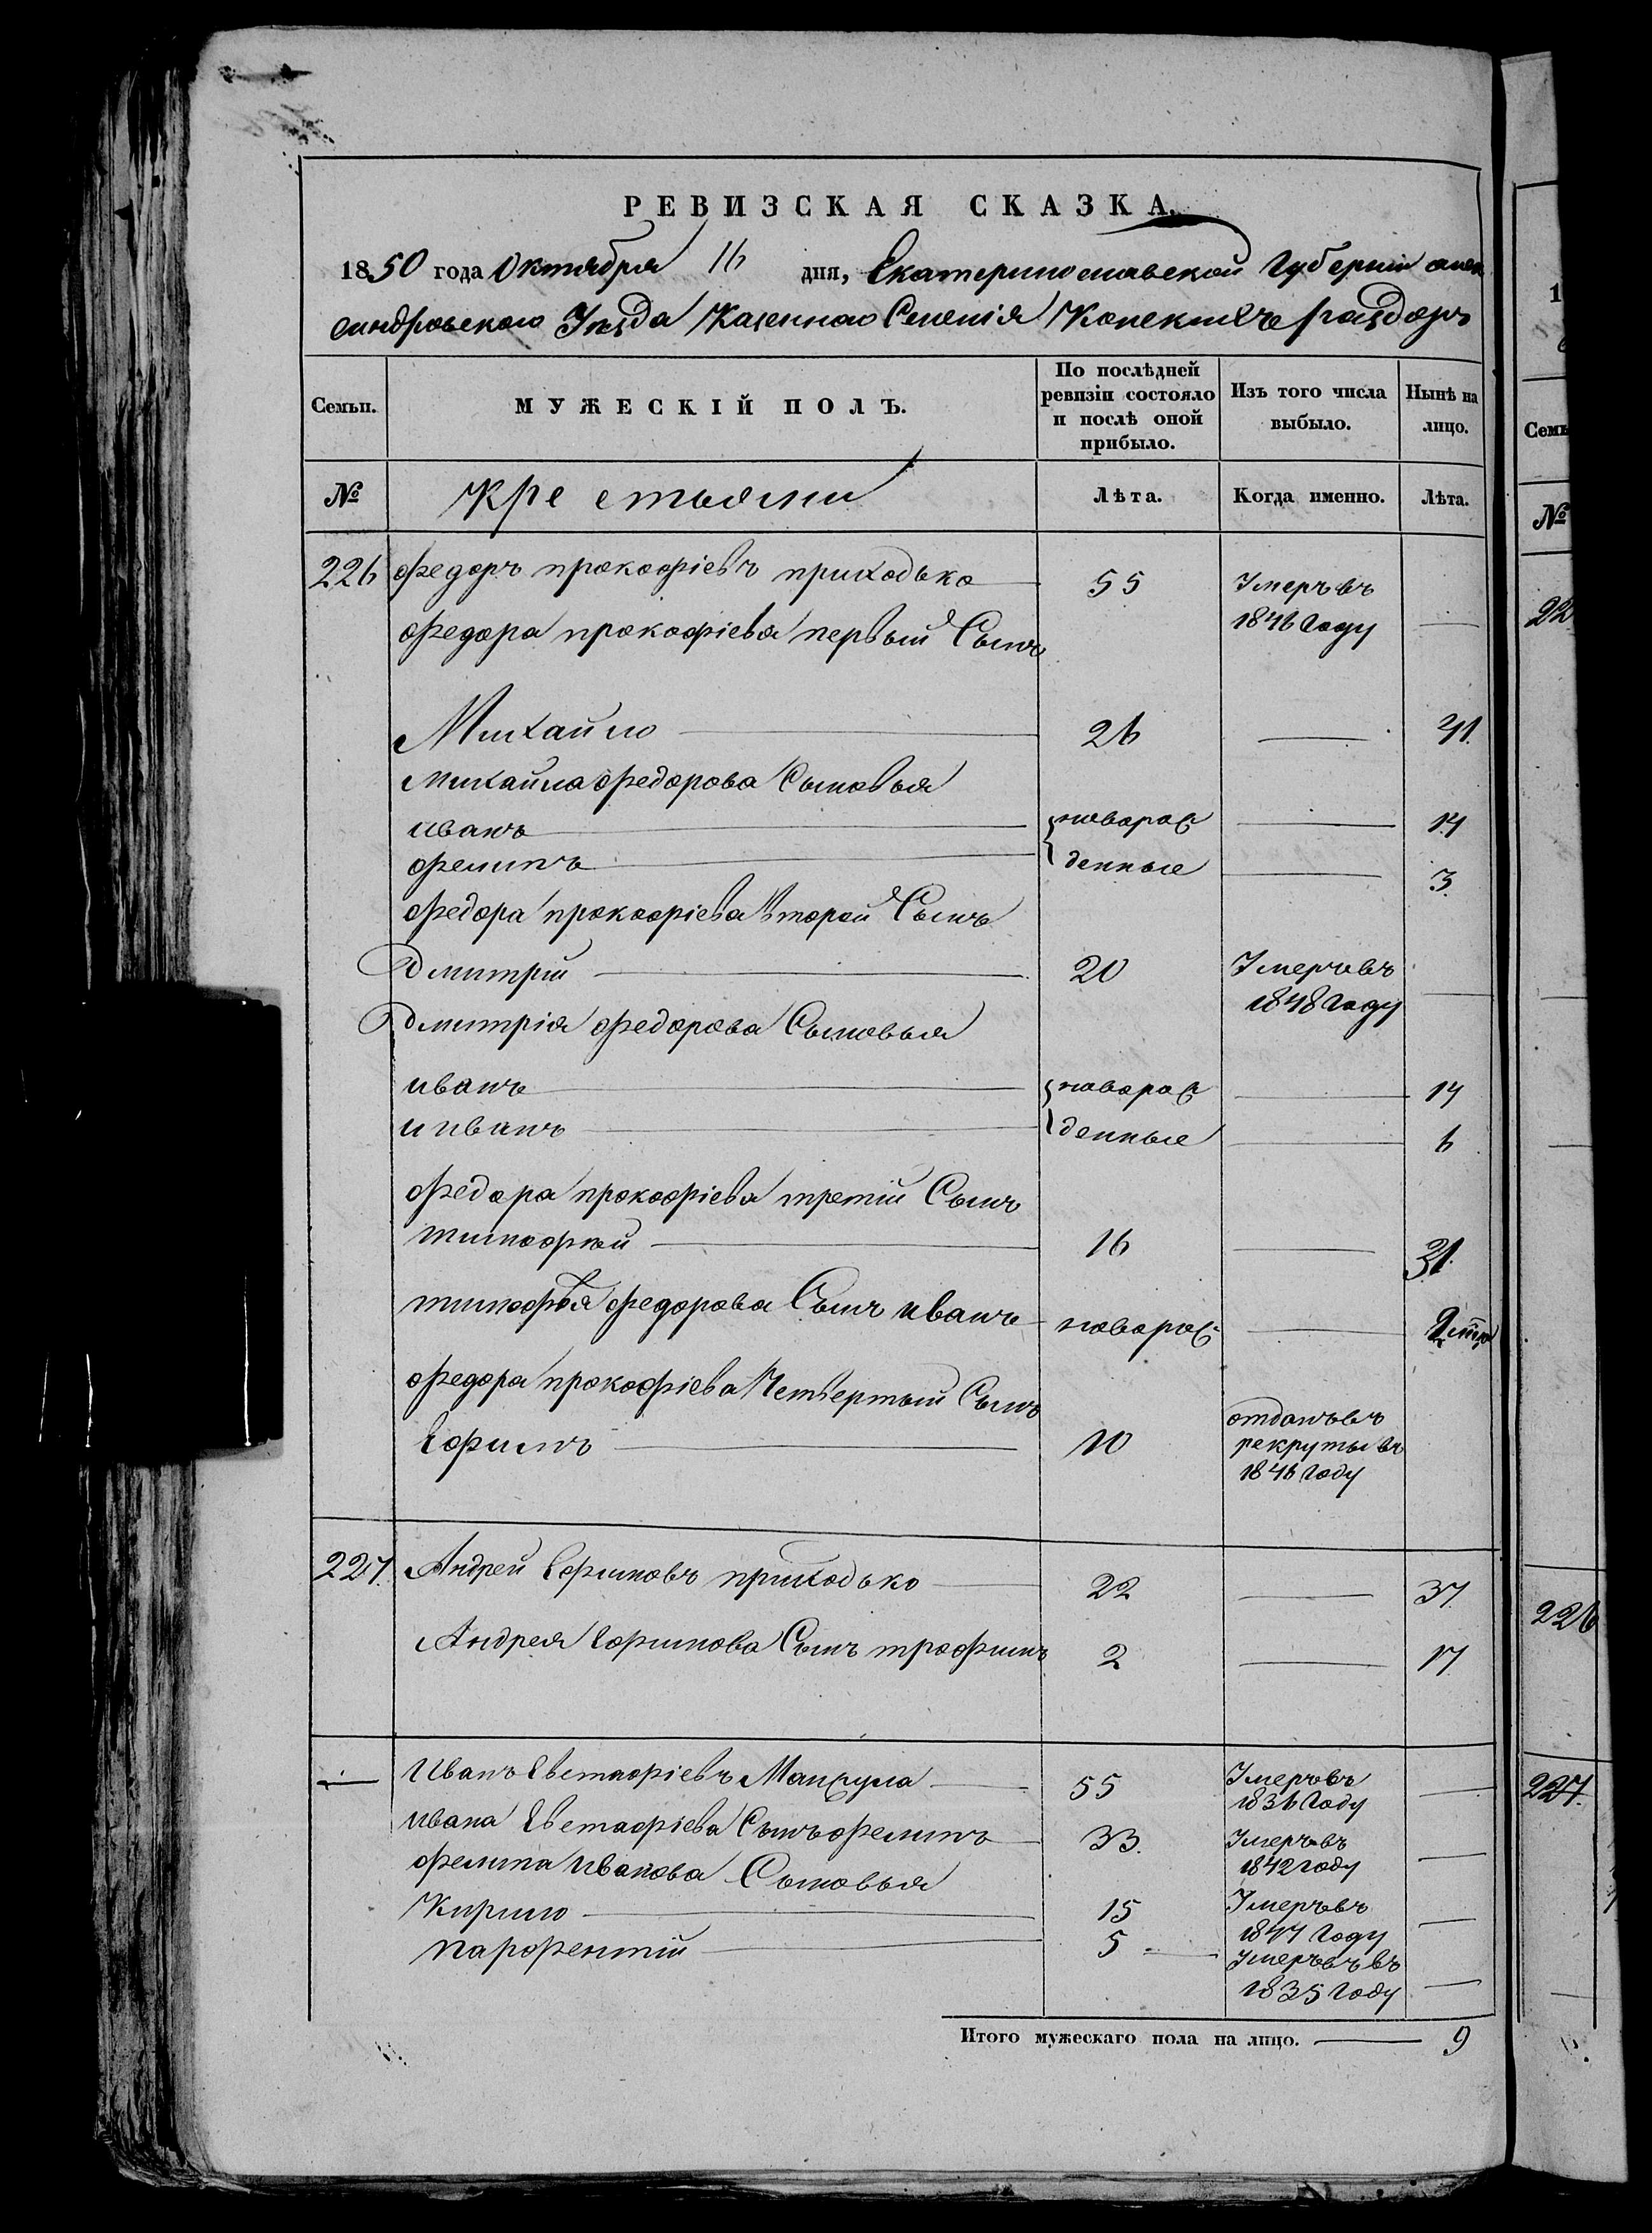 РЕВИЗСКАЯ СКАЗКА.
1850 года Октября 16 дня, Екатеринославской Губернии алек
сандровского Уѣзда Казенного Селенія Конскихъ раздоръ
Семьи.
МУЖЕСКІЙ ПОЛЪ.
По послѣдней ревизіи состояло и послѣ оной прибыло.
Изъ того числа выбыло.
Нынѣ на лицо.
№ Крестьяни Лѣта. Когда именно. Лѣта.
226 Федоръ прокофіевъ приходько 55 Умеръ въ 1846 Году —
Федора прокофіева первый Сынъ
Михайло 26 — 41.
Михайла Федорова Сыновья
иванъ } новорож — 14
Филипъ } денные — 3.
Федора прокофіева Второй Сынъ
Дмитрій 20 Умеръ въ 1848 Году —
Дмитрія Федорова Сыновья
иванъ } новорож — 14
и иванъ } денные — 6
Федора прокофіева третій Сынъ
тимофей 16 — 31.
тимофѣя Федорова Сынъ иванъ новорож —
Федора прокофіева Четвертый Сынъ
Ефимъ 10 отданъ въ рекруты въ 1846 Году
227. Андрей Ефимовъ приходько 22 — 37
Андрея Ефимова Сынъ трофимъ 2 — 17
— Иванъ Евстафіевъ 55 Умеръ въ 1836 Году —
ивана Евстафіева Сынъ Филипъ 33. Умеръ въ 1842 году —
Филипа иванова Сыновья
Кирило 15 Умеръ въ 1847 Году —
парфентій 5 — Умеръ въ 1835 Году —
Итого мужескаго пола на лицо. — 9
1
Семь
№
22
226
227.